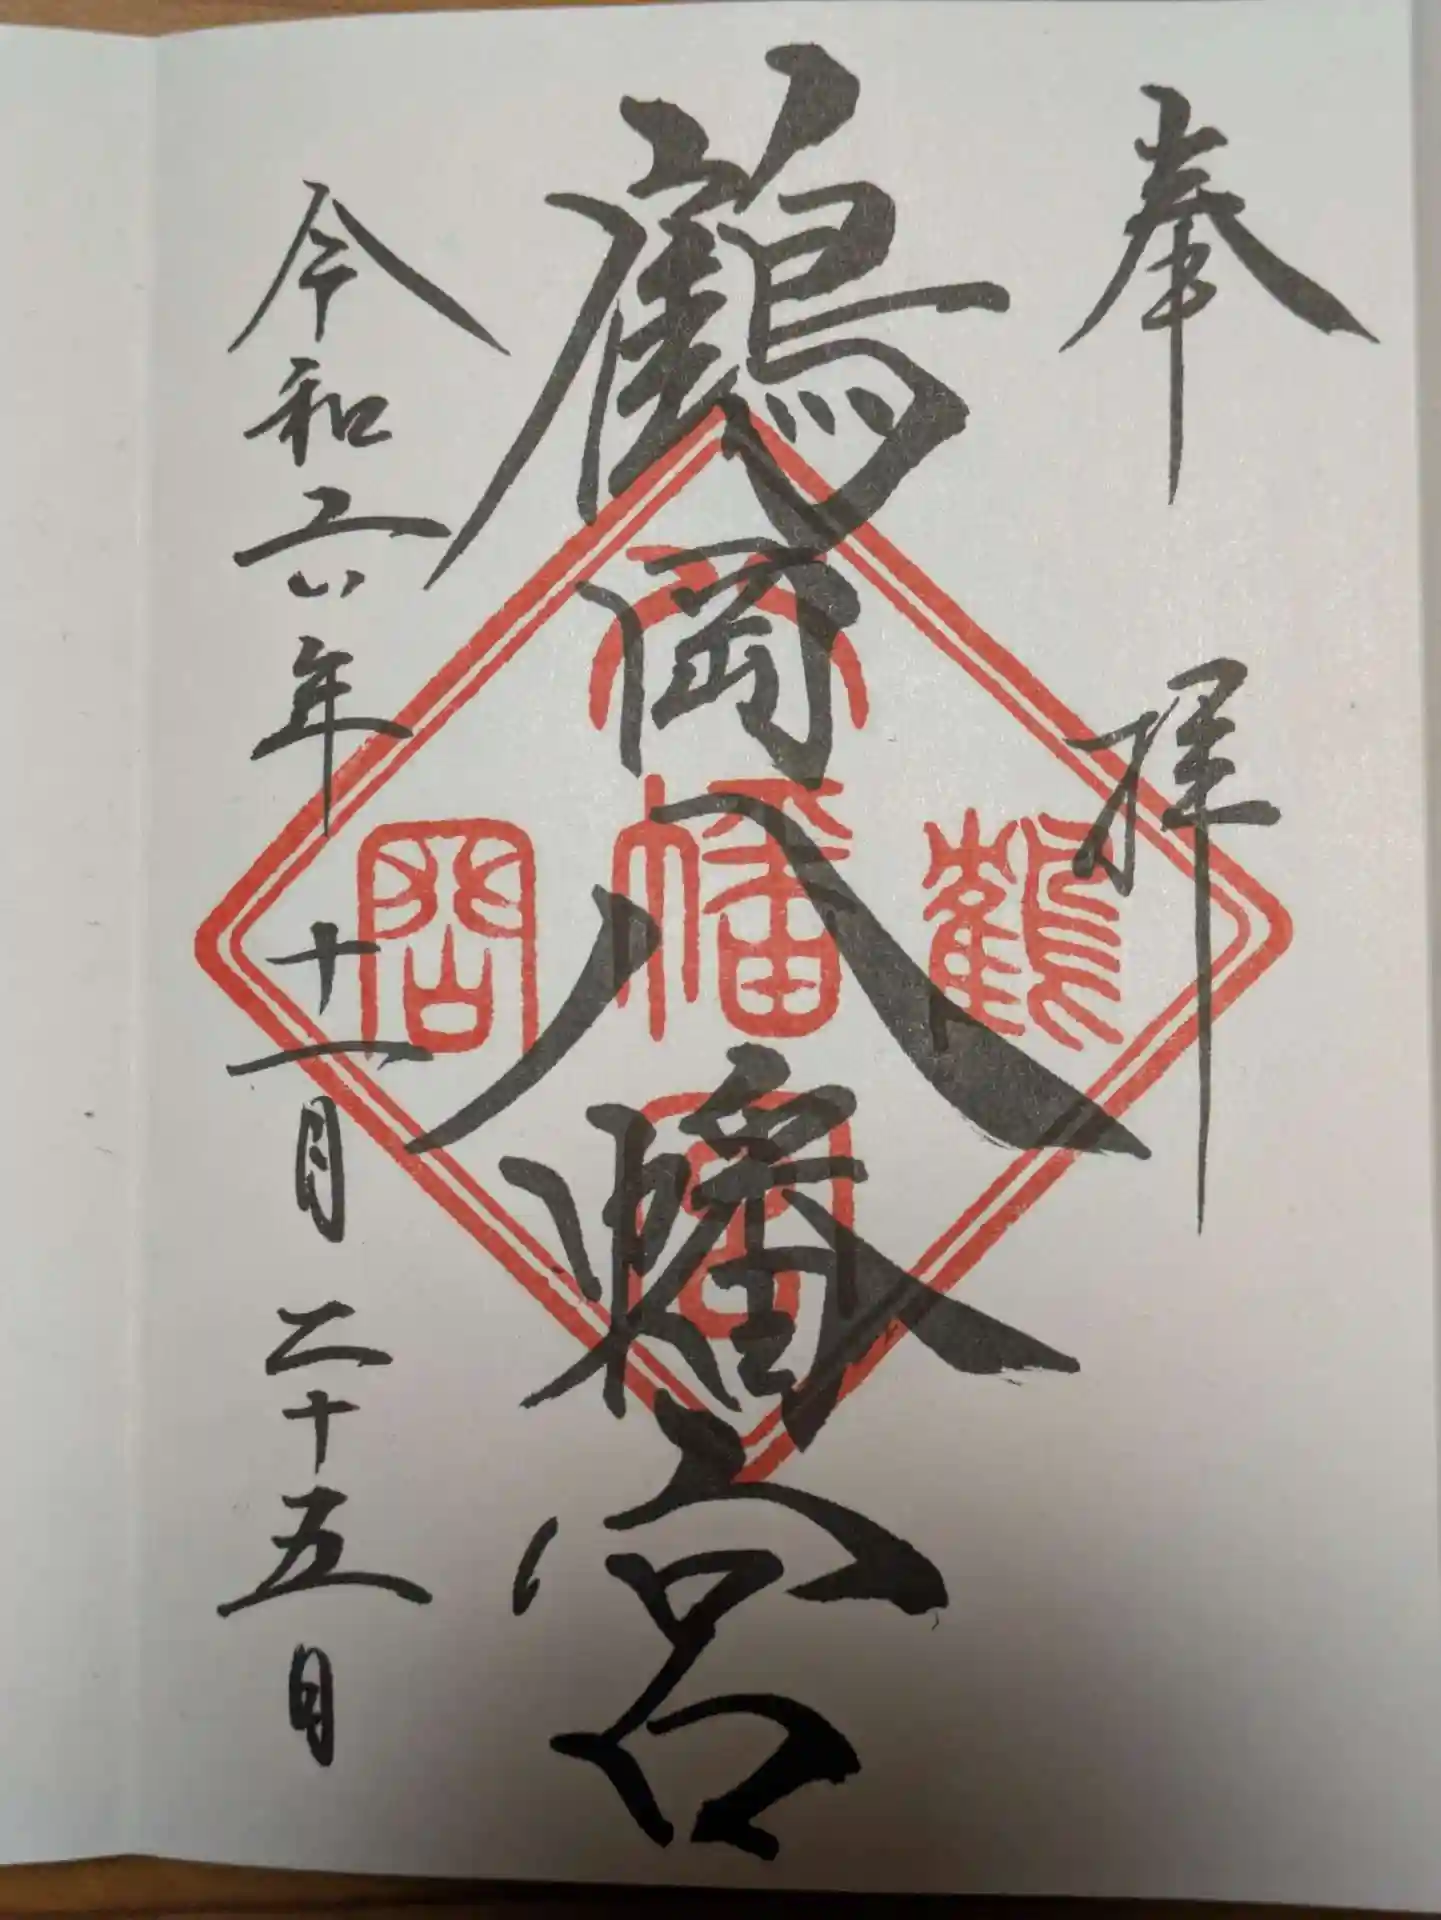 奉拝
鶴岡八幡宮
八
鶴幡岡
宮
令和六年十一月二十五日